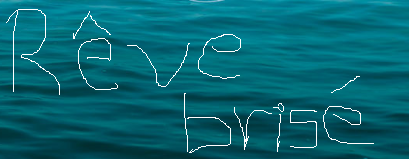 Rêve
brisé